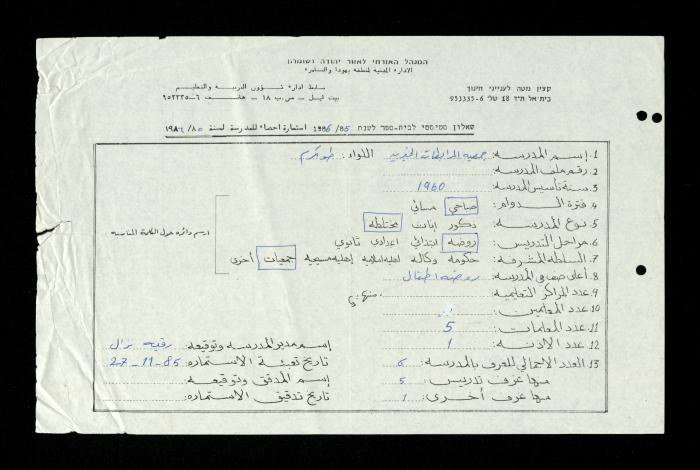 המנהל האזרחי לאזור יהודה ושומרון
الادارة المدنية لمنطقة يهودا والسامرة
קצין מטה לענייני חינוך
בית-אל ת״ד 18 טל׳ 953335-6
ضابط ادارة شؤون التربية والتعليم
بيت ايل - ص.ب ١٨ - هاتف ٦-٩٥٣٣٣٥
שאלון סטטיסטי לבית-ספר לשנת 1986/85 استمارة احصاء للمدرسة لسنة ١٩٨٦/٨٥
١. إسم المدرسة: جمعية الخيرية اللواء: طولكرم
٢. رقم ملف المدرسة:
٣. سنة تأسيس المدرسة: 1960
٤. فترة الدوام: صباحي مسائي
٥. نوع المدرسة: ذكور إناث مختلطة
٦. مراحل التدريس: روضة ابتدائي اعدادي ثانوي
٧. السلطة المشرفة: حكومة وكالة اهلية اسلامية اهلية مسيحية جمعيات أخرى
ارسم دائرة حول الكلمة المناسبة
٨. أعلى صف في المدرسة: روضة اطفال
٩. عدد المراكز التعليمية:
١٠. عدد المعلمين:
١١. عدد المعلمات: 5
١٢. عدد الاذنة: 1
١٣. العدد الاجمالي للغرف بالمدرسة: 6
منها غرف تدريس: 5
منها غرف أخرى: 1
إسم مدير المدرسة وتوقيعه: رقية نزال
تاريخ تعبئة الاستمارة: 27-11-85
إسم المدقق وتوقيعه:
تاريخ تدقيق الاستمارة: